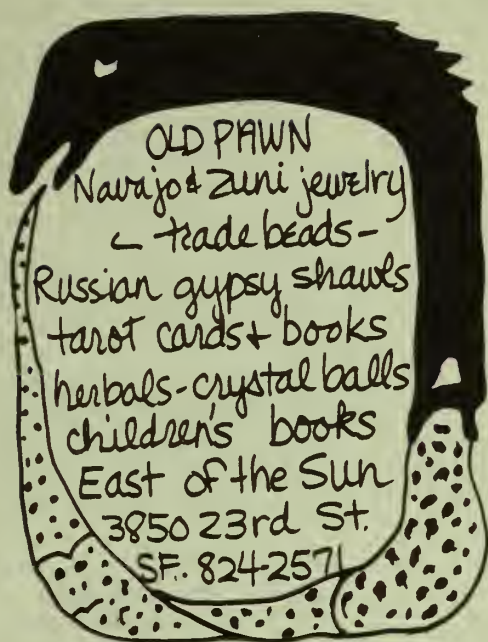 OLD PAWN
Navajo & Zuni jewelry
- trade beads -
Russian gypsy shawls
tarot cards & books
herbals - crystal balls
children's books
East of the Sun
3850 23rd St.
SF. 824-2571